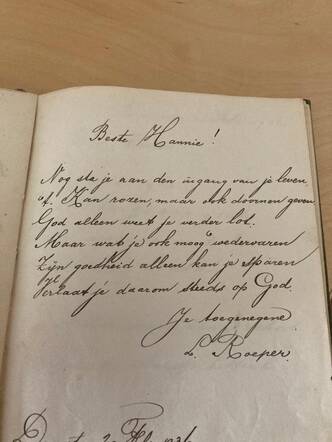 Beste Hannie!
Nog sta je aan den ingang van je leven
't Kan rozen, maar ook doornen geven
God alleen weet je verder lot.
Maar wat je ook moog' wedervaren
Zijn goedheid alleen kan je sparen
Verlaat je daarom steeds op God.
Je toegenegene
L. Roeper.